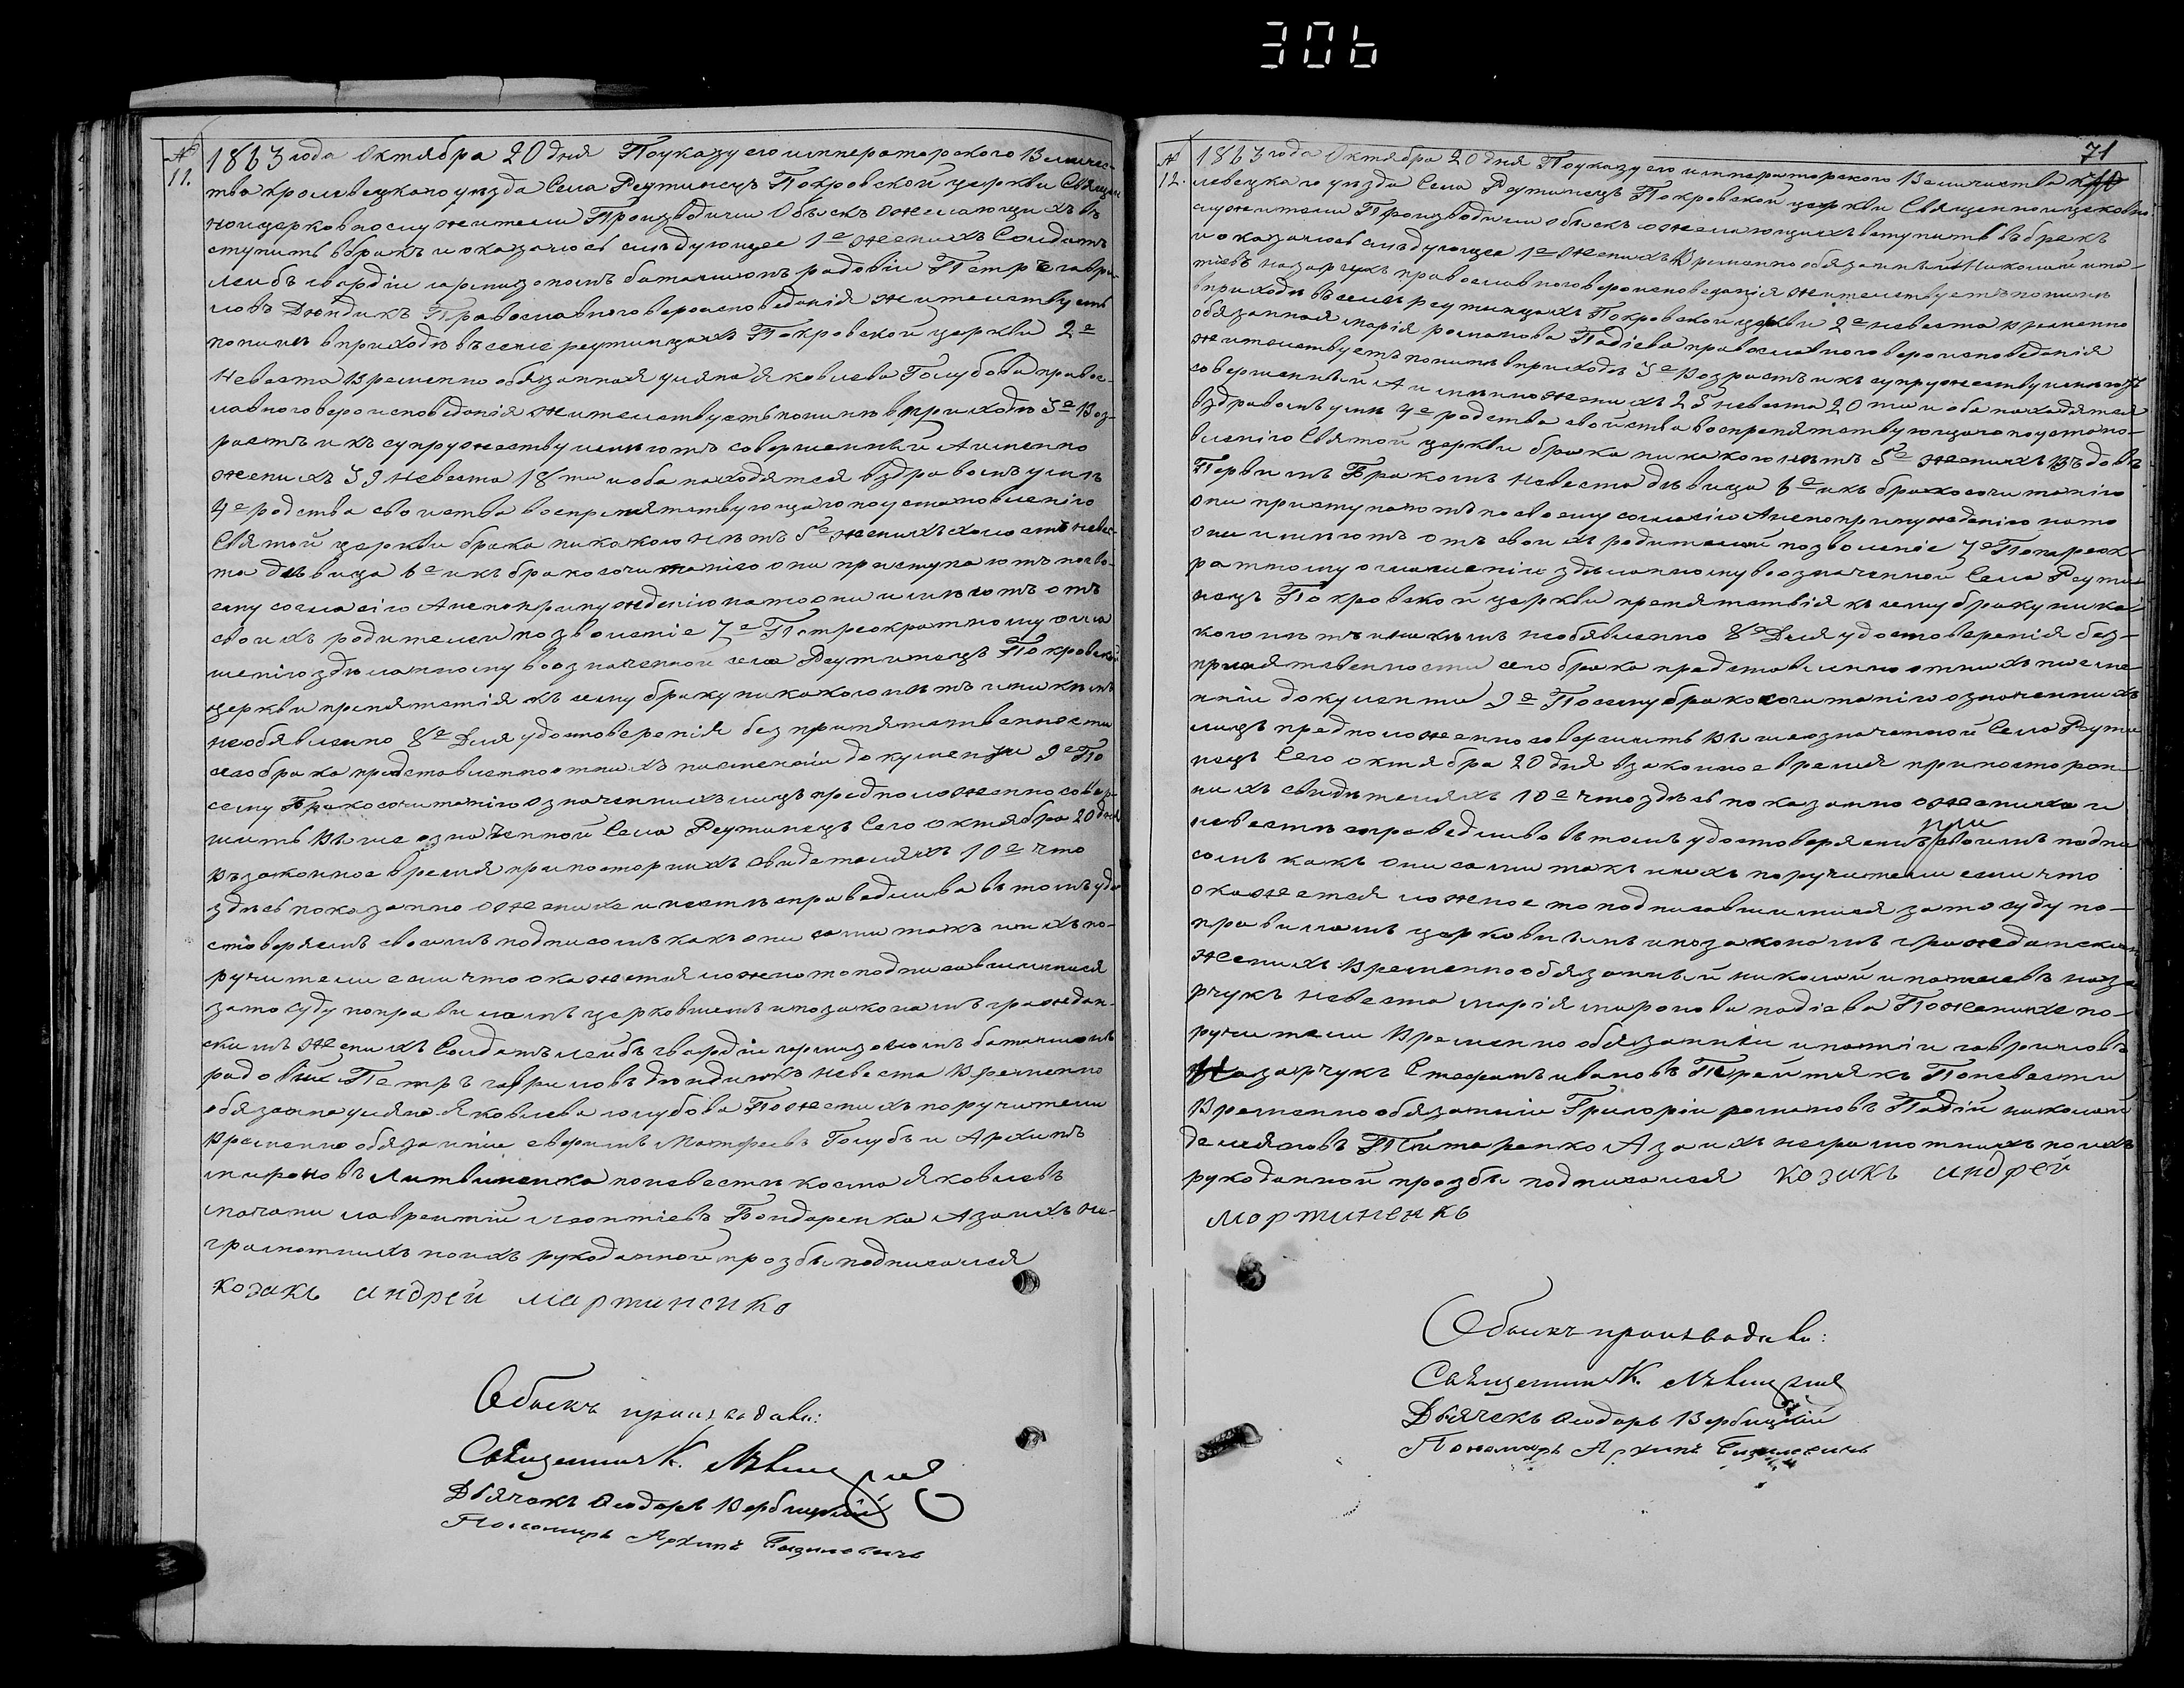 306
№ 11.
1863 года Октября 20 дня Поуказу его императорского Величес-
тва кролевецкого уезда Села Реутинецъ Покровской церкви Священ
ноицерковнослужители Производили Обыскъ Ожелающихъ въ
ступить вбракъ иоказалось следующее 1е женихъ Солдатъ
леибъ гвардіи гарнизономъ баталионъ радовіи Петръ гаври
ловъ Дюндикъ Православного вероисповеданія жителствуетъ
понине вприходе въ селе реутинцахъ Покровской церкви 2е
Невеста Временно обязанная уляна яковлева Голубова правос-
лавного вероисповеданія жителствуетъ понине вприходе 3е Воз-
растъ икъ супружеству имеютъ совершенный Аименно
женихъ 39 Невеста 18ти иоба находятся вздравомъ уме
4е родства своиства воспрепятствующаго поустановленію
Святой церкви брака никакого нетъ 5е женихъ холостъ невес-
та девица 6е икъ бракосочитанію они приступаютъ посво-
ему согласію Анепопринуждению нато они имеютъ отъ
своихъ родителеи позволеніе 7е Потреократному огла
шенію зделанному воозначенной села Реутинецъ Покровской
церкви препятствія къ сему браку никакого нетъ иникемъ
необявленно 8е Для удостоверенія без припятственности
сего брака представленно отних писменіи документи 9е По
сему Бракосочитанію означенныхъ лицъ предположенно совер-
шить Выше означенной Села Реутинецъ Сего октября 20 дня
Въ законное время припосторнихъ свидетеляхъ 10е что
здесь показанно ожених и невесте справедливо въ томъ удо
стоверяемъ своимъ подписомъ какъ они сами такъ иихъ по-
ручители если что окажется ложно топодписавшиеся
зато суду поправиламъ церковнимъ ипозаконамъ граждан-
скимъ Женихъ Солдатъ леибъ гвардіи гарнизономъ баталионъ
радовіи Петръ гавриловъ дюндикъ невеста Временно
обязанна уляна Яковлева голубова Поженихе поручители
Временно обязаніи ефремъ Матфеевъ Голубъ и Архипъ
мироновъ Литвиненко поневесте косма яковлевъ
лаврентіи леонтіевъ Бондаренко Азаихъ не-
грамотнихъ поихъ рукоданной прозбе подписался
козакъ андрей мартиненко
Обыскъ производили:
Священникъ
Дьячекъ Феодоръ Вербицкій
Пономарь Архипъ
71
№ 12.
1863 года Октября 20 дня Поуказу его императорского Величества кро
левецкаго уезда Села Реутинецъ Покровской церкви Священноицерковно
служители Производили обыскъ ожелающихъ вступить въ бракъ
и оказалось следующее 1е Женихъ Временно обязанный Николай ипа-
тіевъ назарчукъ православного вероисповеданія жителствуетъ понине
вприходе въ селе реутинцахъ Покровской церкви 2е невеста временно
обязанная марія романова Падіева православного вероисповеданія
жителствуетъ понине вприходе 3е Возрастъ икъ супружеству имеютъ
совершенный Аименно женихъ 25 невеста 20ти и оба находятся
вздравомъ уме 4е родства свойства воспрепятствующаго поустано-
вленію Святой церкви брака никакого нетъ 5е женихъ вдовъ
Первимъ Бракомъ невеста девица 6е икъ бракосочитанію
они приступаютъ посвоему согласію Анепопринужденію нато
они имеютъ отъ своихъ родителей позволеніе 7е Потреок-
ратному оглашеніи зделанному воозначенной Села Реути
нецъ Покровской церкви препятствія къ сему браку ника
кого нетъ иникемъ необявленно 8е Для удостоверенія без-
припятственности сего брака представленно отнихъ писме-
нніи документи 9е Посему бракосочитанію означеннихъ
лицъ предположенно совершить Вышеозначенной Села Реути
нецъ Сего октября 20 дня взаконное время припосторон-
нихъ свидетеляхъ 10е что здесь показанно ожениха и
невесте справедливо въ томъ удостоверяемъ при своимъ подпи
сомъ какъ они сами такъ иихъ поручители если что
окажется ложное топодписавшиеся зато суду по-
правиламъ церковнымъ ипозаконамъ гражданским
Женихъ Временно обязанный николай ипатіевъ наза
рчукъ невеста марія миронова падіева Поженихе по-
ручители Временно обязанніи ипатіи гавриловъ
Назарчукъ Стефанъ ивановъ Поневести
Временно обязанніи Григорій романовъ Падій николай
демяновъ Титаренко Азаихъ неграмотнихъ поихъ
рукоданной прозбе подписался козакъ андрей
мартиненко
Обыскъ производили:
Священникъ
Дьячекъ Феодоръ Вербицкій
Пономарь Архипъ